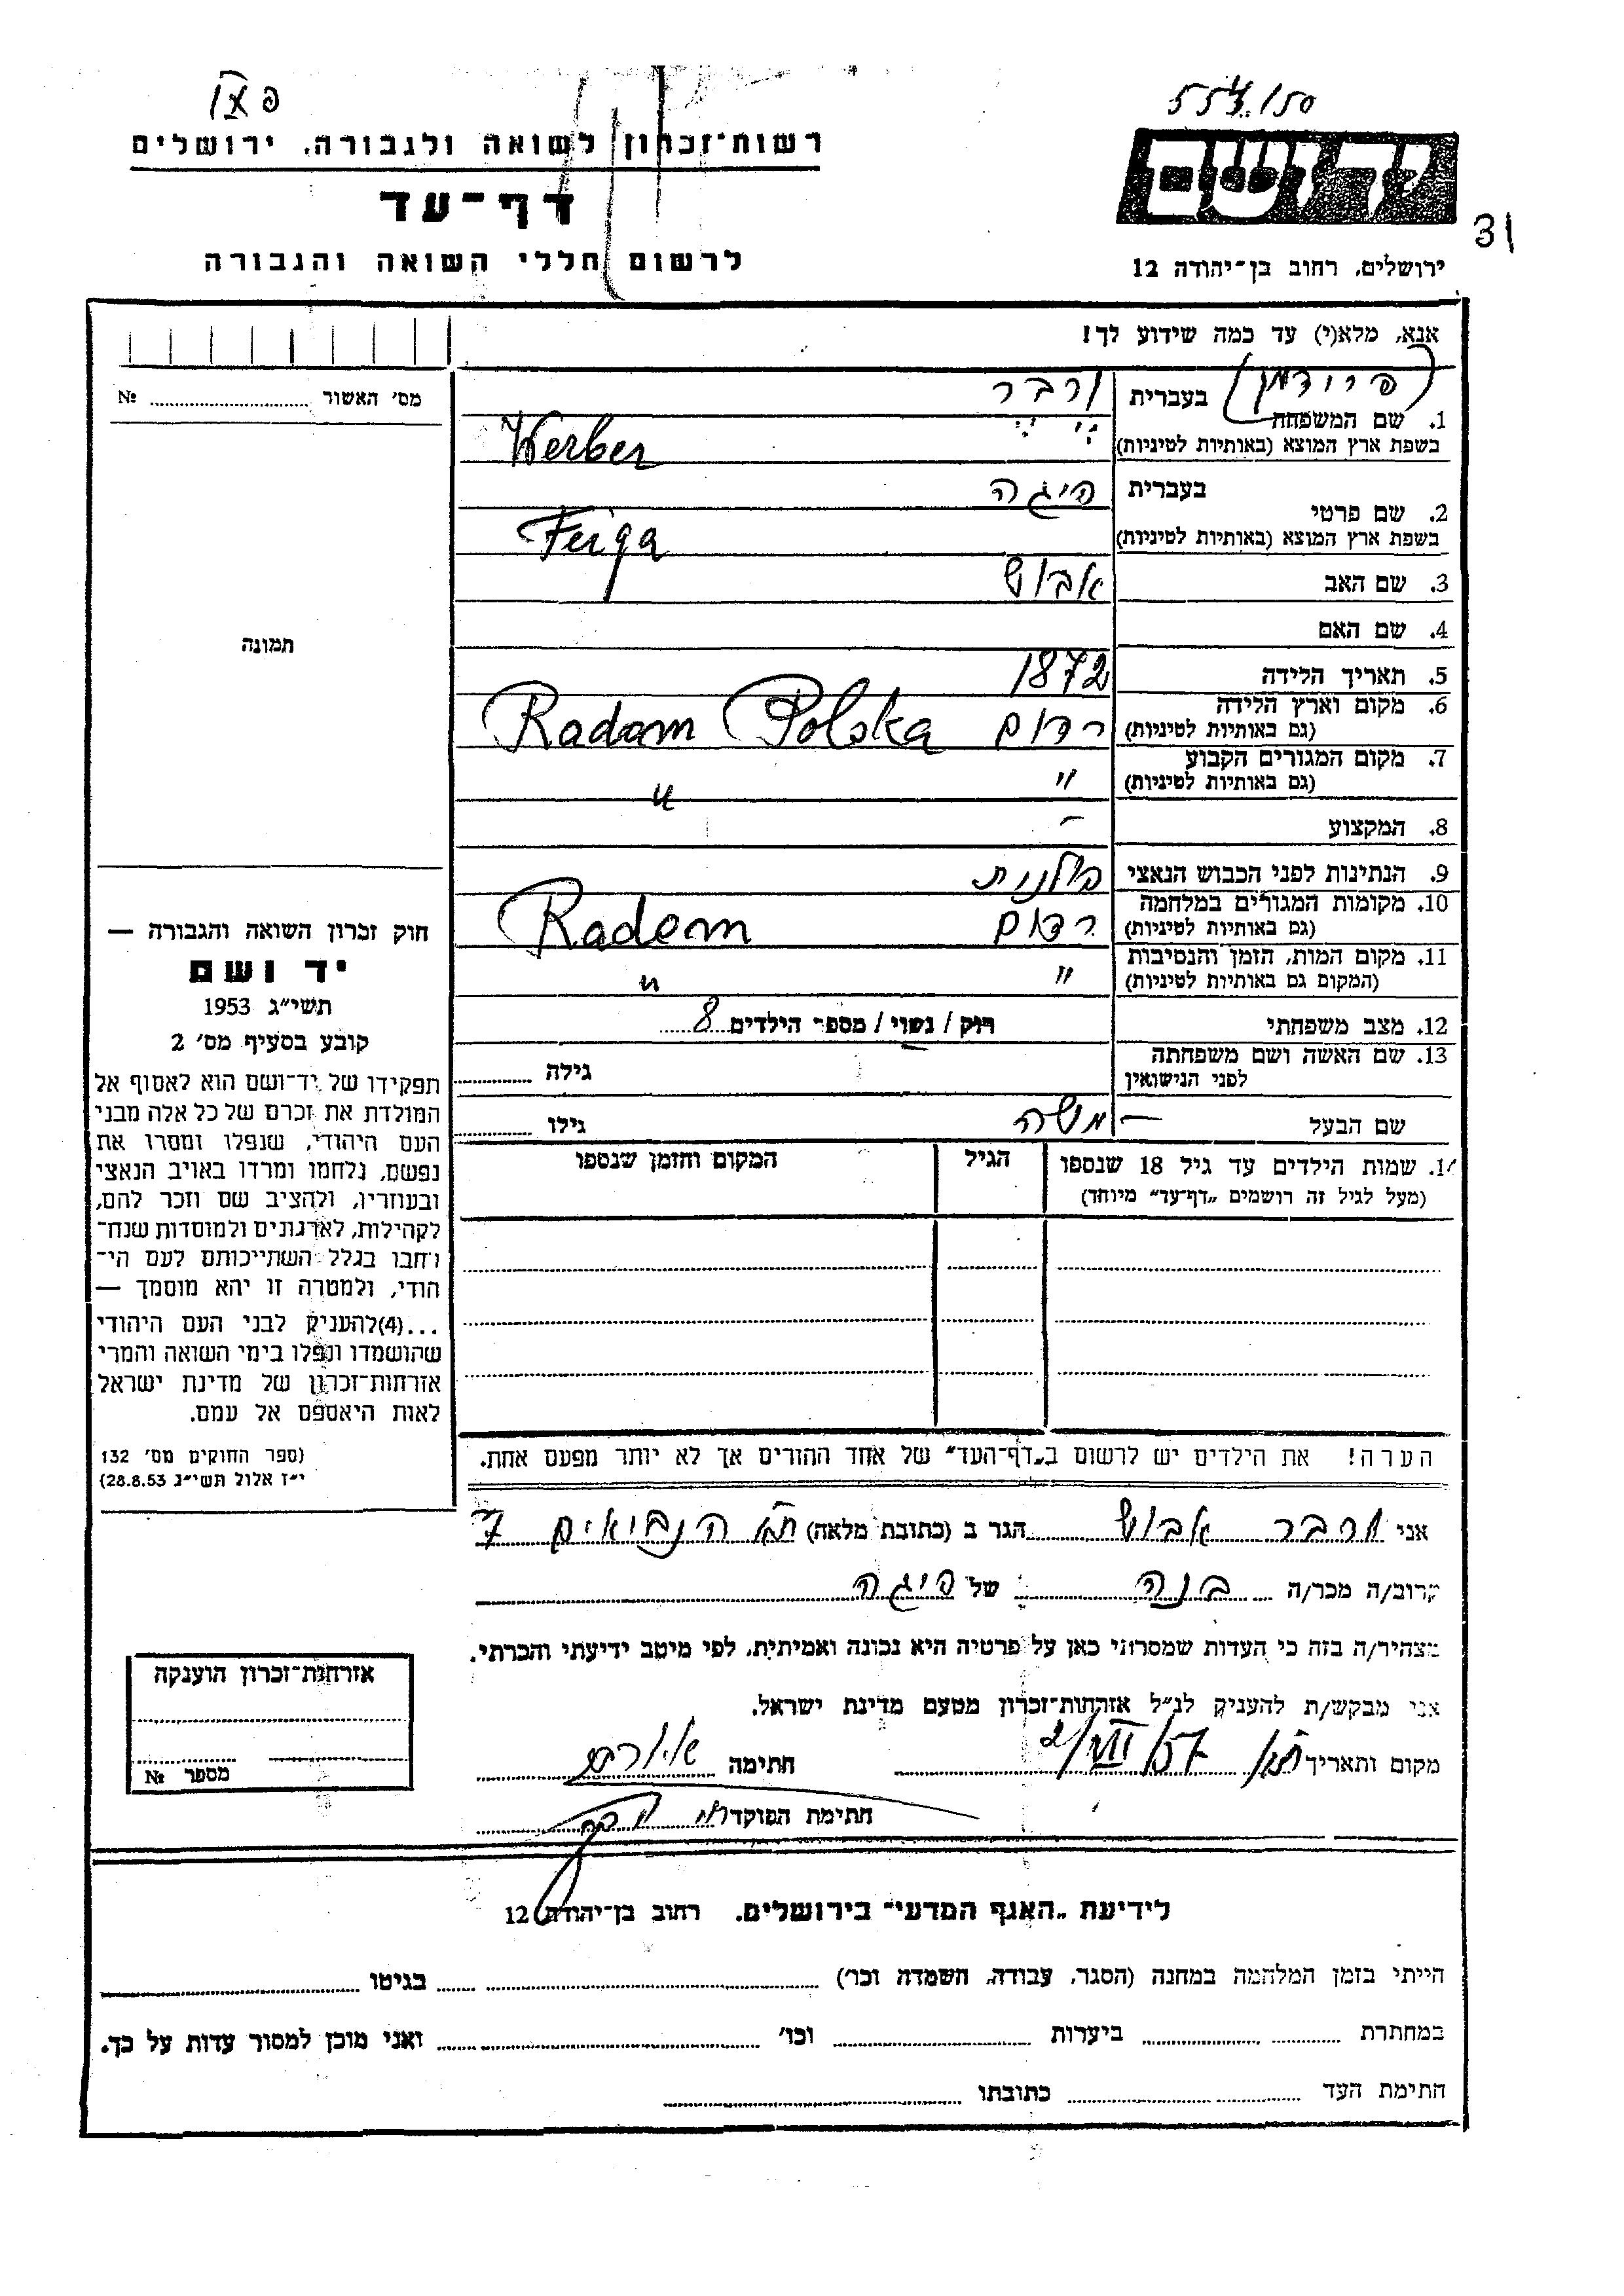 רשות־זכרון לשואה ולגבורה, ירושלים
דף־עד
לרשום חללי השואה והגבורה
יד ושם
31
ירושלים, רחוב בן־יהודה 12
אנא, מלא(י) עד כמה שידוע לך!
מס׳ האשור № 
1. שם המשפחה בעברית (פרידמן) ורבר
בשפת ארץ המוצא (באותיות לטיניות) Werber
2. שם פרטי בעברית פיגה
בשפת ארץ המוצא (באותיות לטיניות) Feiga
3. שם האב אבוש
4. שם האם
תמונה
5. תאריך הלידה 1872
6. מקום וארץ הלידה רדום Radom Polska
(גם באותיות לטיניות)
7. מקום המגורים הקבוע " "
(גם באותיות לטיניות)
8. המקצוע –
9. הנתינות לפני הכבוש הנאצי פולנית
10. מקומות המגורים במלחמה רדום Radom
(גם באותיות לטיניות)
11. מקום המות, הזמן והנסיבות " "
(המקום גם באותיות לטיניות)
12. מצב משפחתי רוק / נשוי / מספר הילדים 8
13. שם האשה ושם משפחתה גילה
לפני הנישואין
שם הבעל – משה גילו
14. שמות הילדים עד גיל 18 שנספו הגיל המקום והזמן שנספו
(מעל לגיל זה רושמים „דף־עד״ מיוחד)
חוק זכרון השואה והגבורה —
יד ושם
תשי״ג 1953
קובע בסעיף מס׳ 2
תפקידו של יד־ושם הוא לאסוף אל
המולדת את זכרם של כל אלה מבני
העם היהודי, שנפלו ומסרו את
נפשם, נלחמו ומרדו באויב הנאצי
ובעוזריו, ולהציב שם וזכר להם,
לקהילות, לארגונים ולמוסדות שנח־
רחבו בגלל השתייכותם לעם הי־
הודי, ולמטרה זו יהא מוסמך —
...(4)להעניק לבני העם היהודי
שהושמדו ונפלו בימי השואה והמרי
אזרחות־זכרון של מדינת ישראל
לאות היאספם אל עמם.
(ספר החוקים מס׳ 132
י״ז אלול תשי״ג 28.8.53)
הערה! את הילדים יש לרשום ב„דף־העד״ של אחד ההורים אך לא יותר מפעם אחת.
אני ורבר אבוש הגר ב (כתובת מלאה) ת״א הנביאים 7
קרוב/ה מכר/ה בנה של פיגה
מצהיר/ה בזה כי העדות שמסרתי כאן על פרטיה היא נכונה ואמיתית, לפי מיטב ידיעתי והכרתי.
אני מבקש/ת להעניק לנ״ל אזרחות־זכרון מטעם מדינת ישראל.
מקום ותאריך ת״א 2/VII/57 חתימה
חתימת הפוקד
אזרחות־זכרון הוענקה
מספר №
לידיעת „האגף המדעי״ בירושלים, רחוב בן־יהודה 12
הייתי בזמן המלחמה במחנה (הסגר, עבודה, השמדה וכו׳) בגיטו
במחתרת ביערות וכו׳ ואני מוכן למסור עדות על כך.
חתימת העד כתובתו